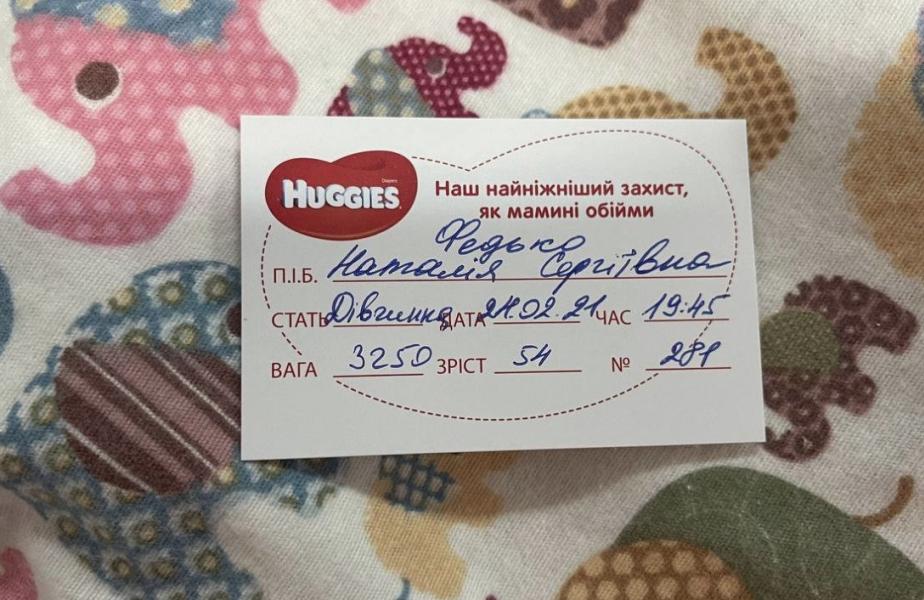 HUGGIES
Наш найніжніший захист,
як мамині обійми
Федько
П.І.Б. Наталія Сергіївна
СТАТЬ Дівчинка ДАТА 21.02.21 ЧАС 19:45
ВАГА 3250 ЗРІСТ 54 № 281